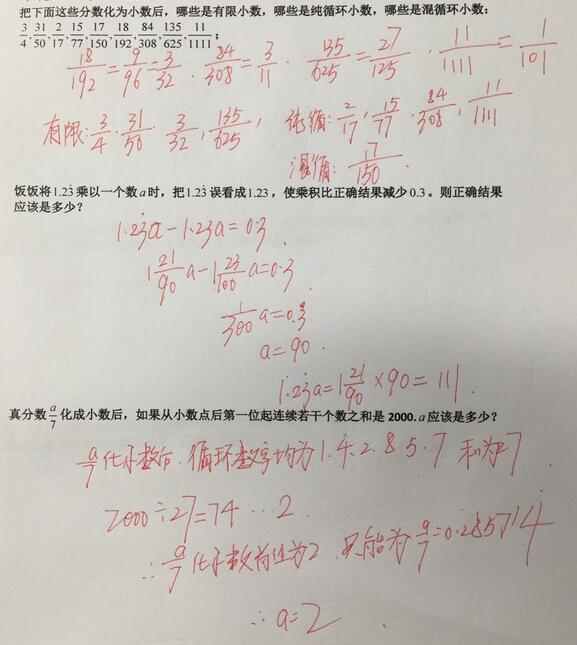 把下面这些分数化为小数后，哪些是有限小数，哪些是纯循环小数，哪些是混循环小数：
3/4, 31/50, 2/17, 15/77, 17/150, 18/192, 84/308, 135/625, 11/1111；
18/192=9/96=3/32. 84/308=3/11. 135/625=27/125. 11/1111=1/101
有限：3/4. 31/50. 3/32, 135/625, 纯循：2/17, 15/77. 84/308, 11/1111
混循：17/150.
饭饭将1.23̇乘以一个数a时，把1.23̇误看成1.23，使乘积比正确结果减少0.3。则正确结果
应该是多少？
1.23̇a-1.23a=0.3.
1 21/90 a-1 23/100 a=0.3.
1/300 a=0.3
a=90.
1.23̇a=1 21/90×90=111.
真分数a/7化成小数后，如果从小数点后第一位起连续若干个数之和是2000.a应该是多少？
a/7化小数后.循环数字均为1.4.2.8.5.7 和为27
2000÷27=74…2
∴a/7化小数首位为2 只能为a/7=0.2̇85714̇
∴a=2.